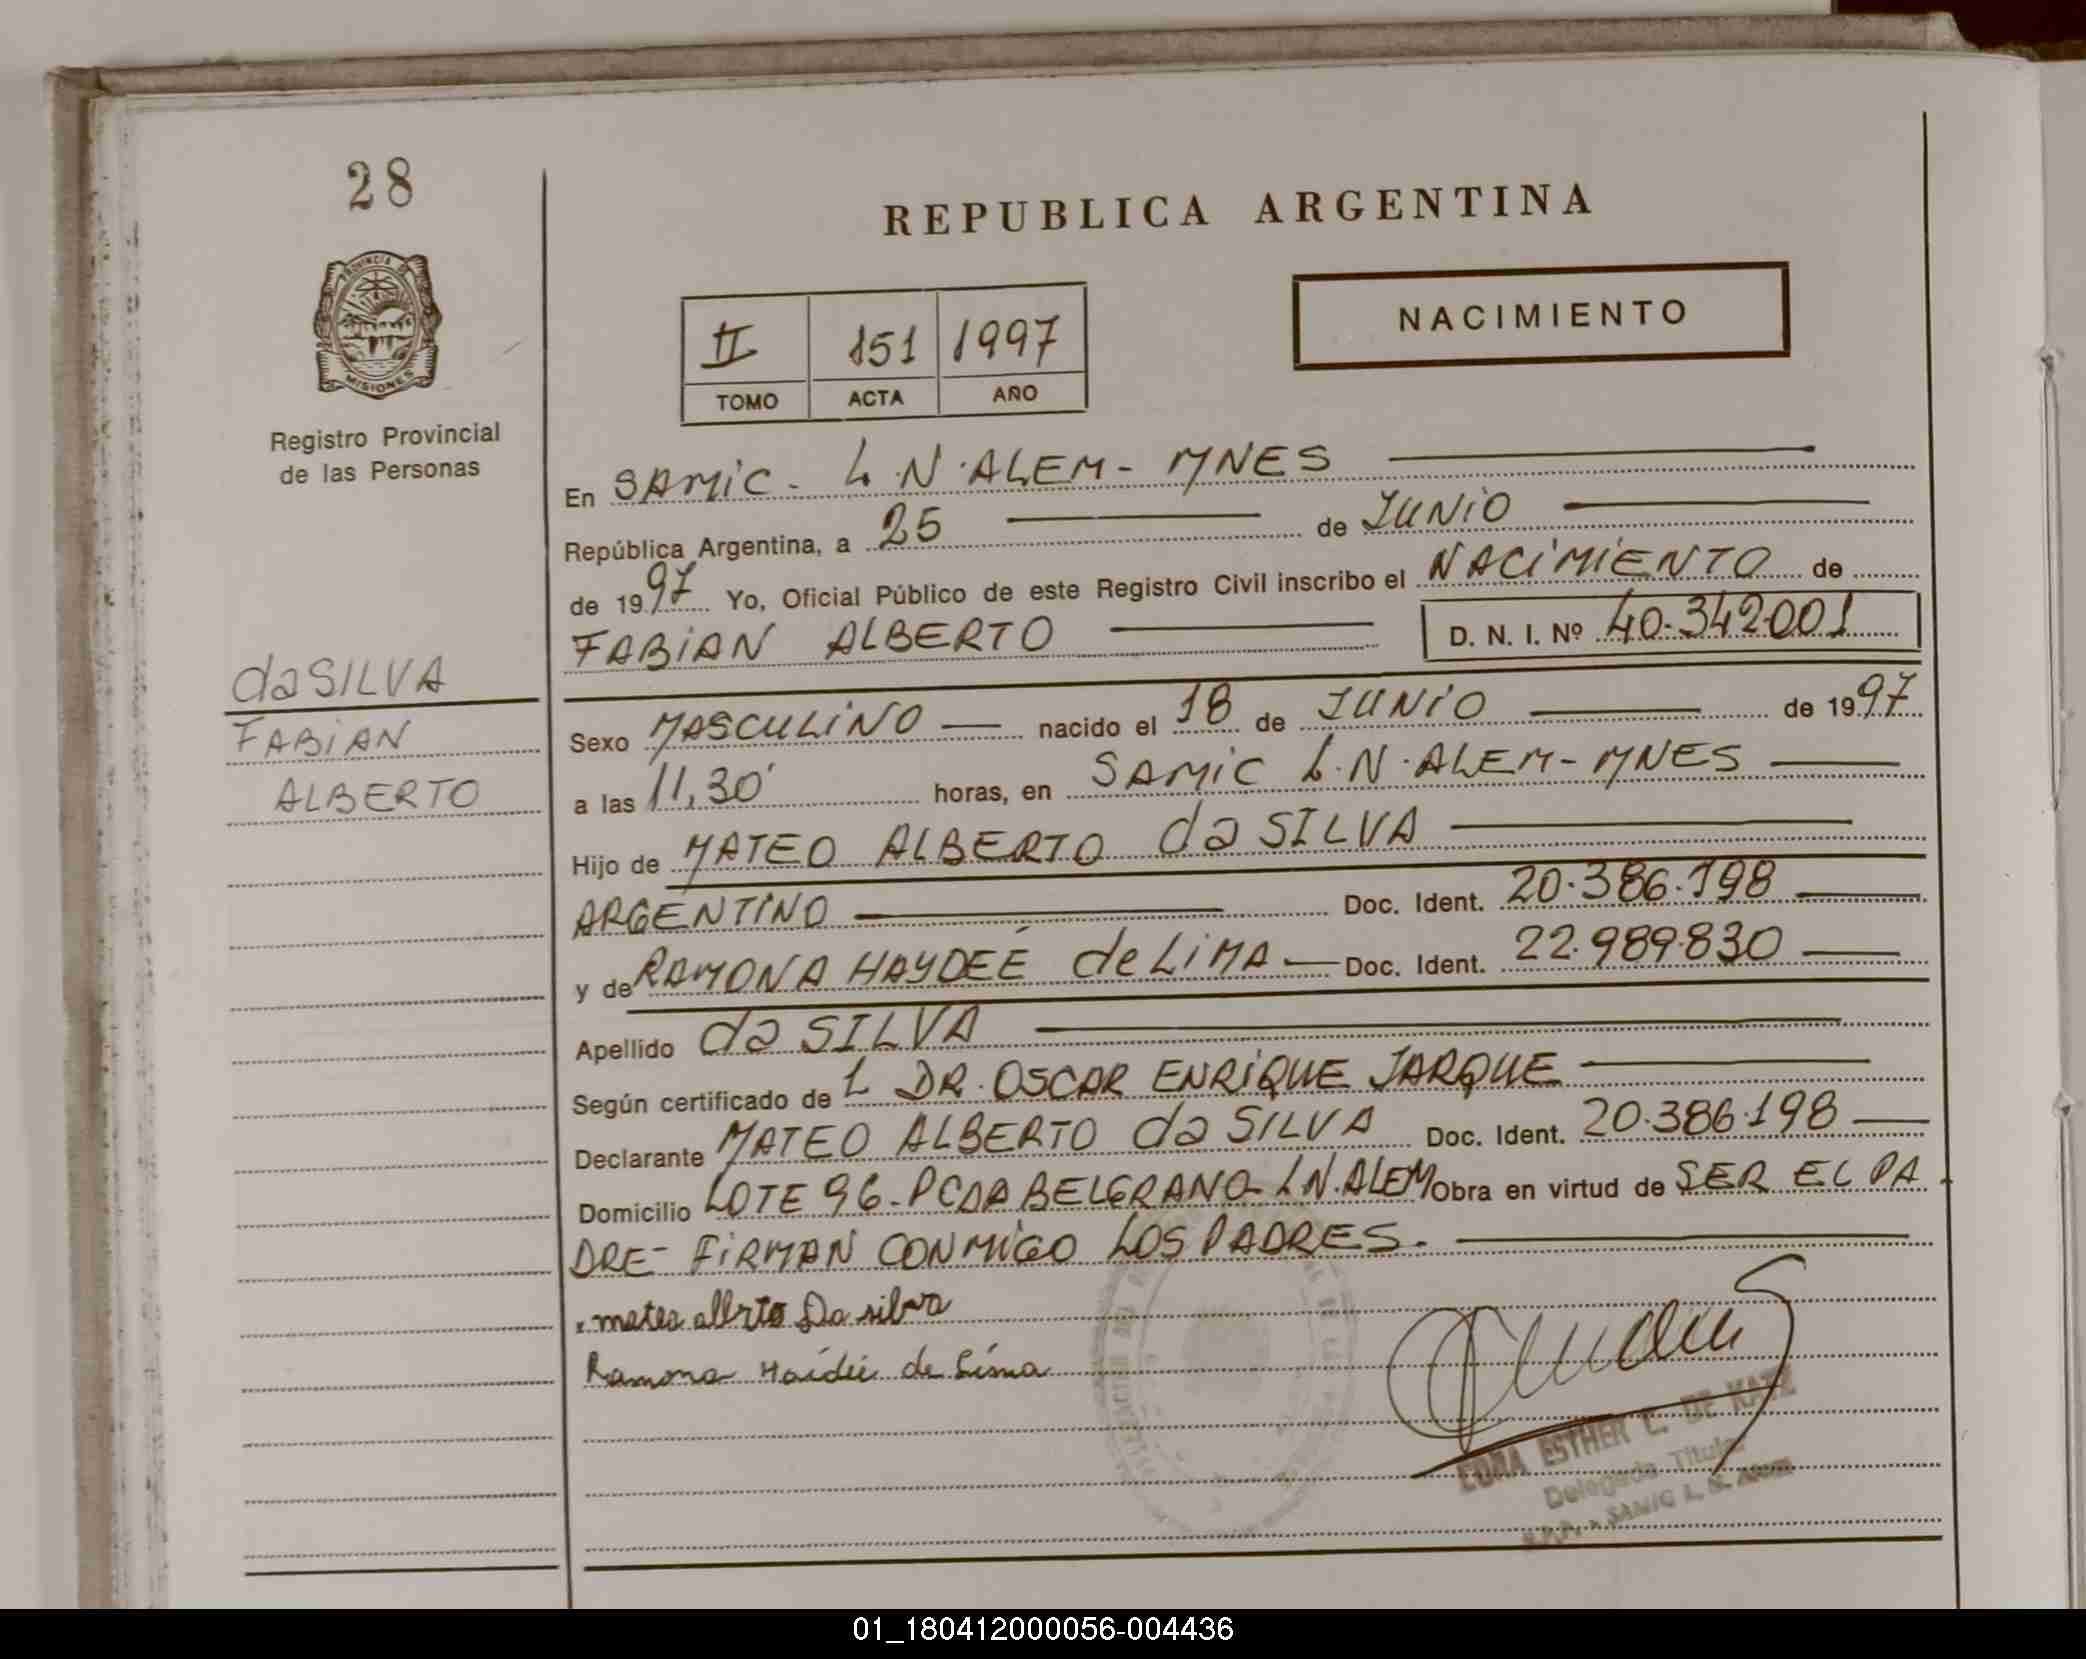 28
REPUBLICA ARGENTINA
PROVINCIA DE
MISIONES
Registro Provincial
de las Personas
II 151 1997
TOMO ACTA AÑO
NACIMIENTO
En SAMIC - L.N. ALEM - MNES
República Argentina, a 25 de JUNIO
de 1997 Yo, Oficial Público de este Registro Civil inscribo el NACIMIENTO de
FABIAN ALBERTO D. N. I. Nº 40.342.001
daSILVA
FABIAN
ALBERTO
Sexo MASCULINO nacido el 18 de JUNIO de 1997
a las 11,30' horas, en SAMIC L.N. ALEM - MNES
Hijo de MATEO ALBERTO da SILVA
ARGENTINO Doc. Ident. 20.386.198
y de RAMONA HAYDEÉ de LIMA Doc. Ident. 22.989.830
Apellido da SILVA
Según certificado de L DR. OSCAR ENRIQUE JARQUE
Declarante MATEO ALBERTO da SILVA Doc. Ident. 20.386.198
Domicilio LOTE 96 - PCDA BELGRANO - L.N. ALEM Obra en virtud de SER EL PA-
DRE - FIRMAN CONMIGO LOS PADRES.
mateo alberto Da silva
Ramona Haideé de Lima
ESTHER C. DE KATZ
Delegada Titular
SAMIC L. N. Alem
01_180412000056-004436